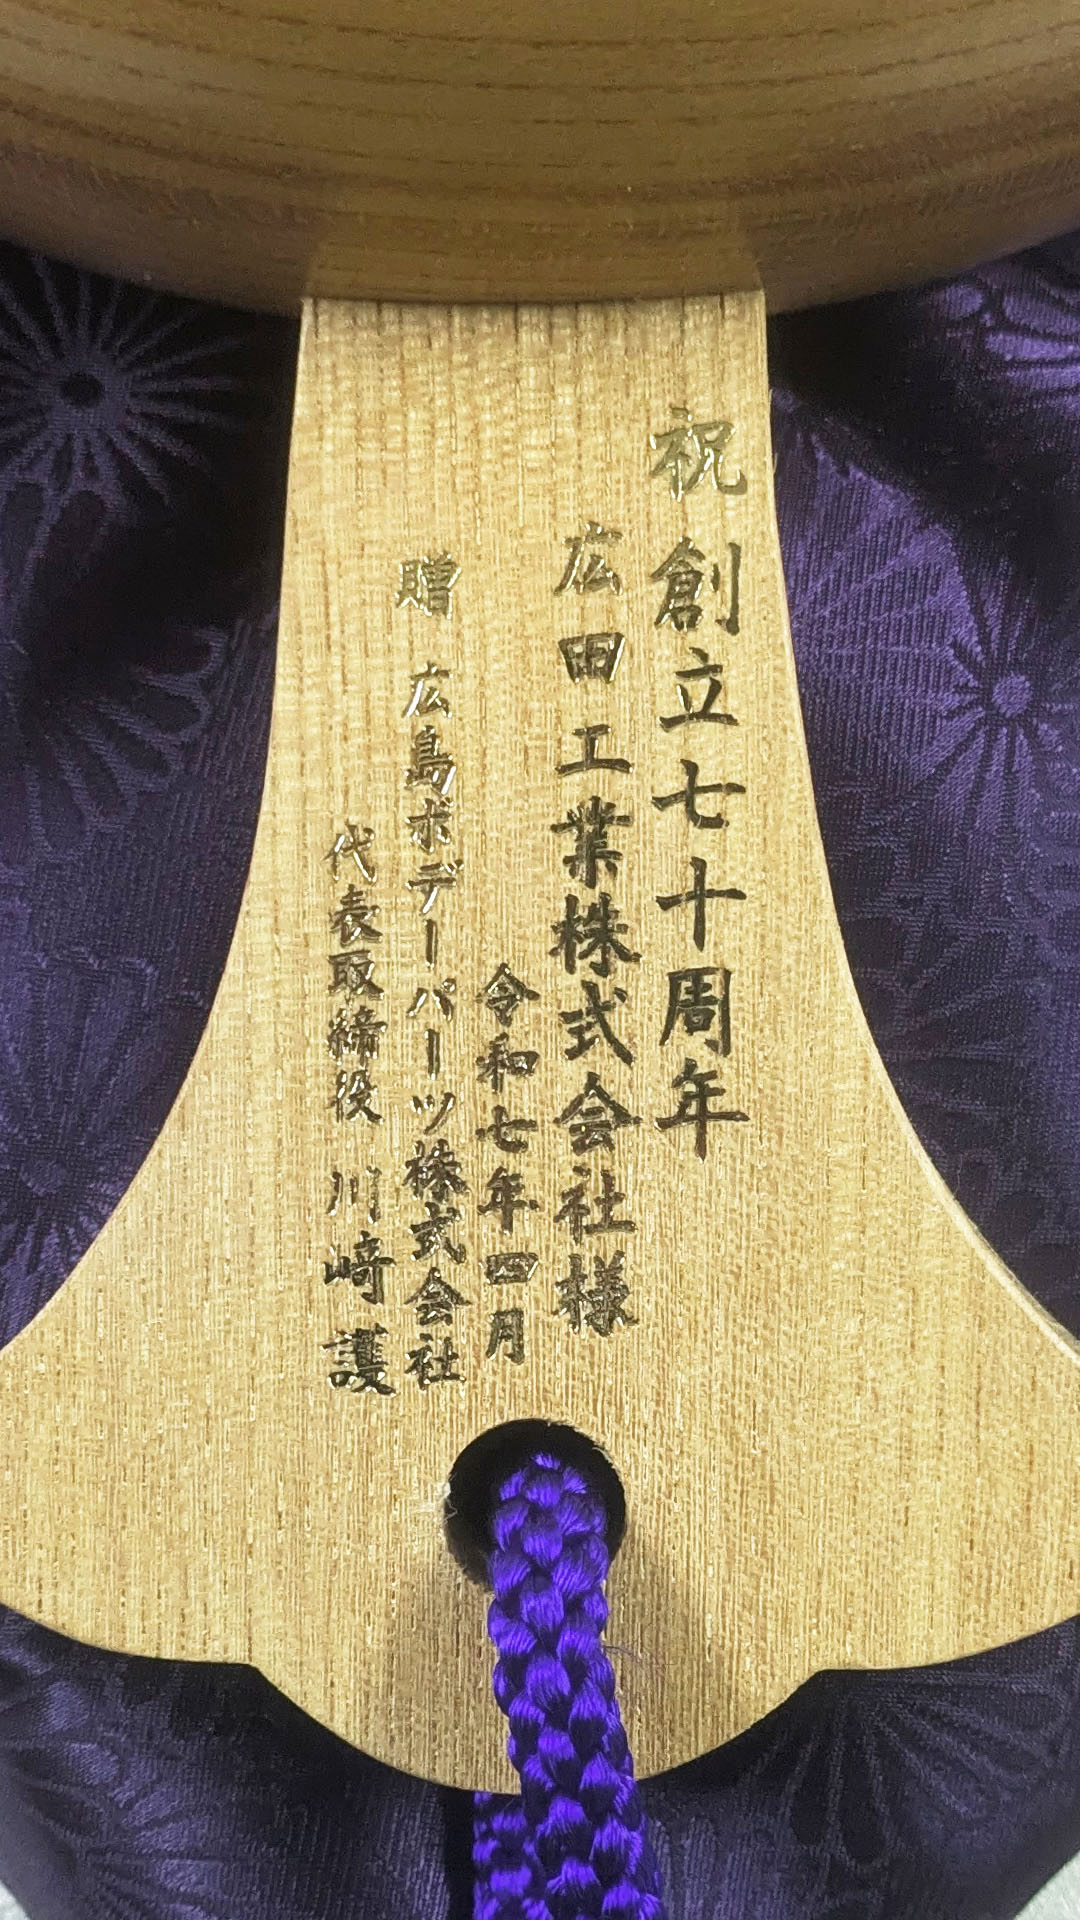 祝 創立七十周年
広田工業株式会社様
令和七年四月
贈 広島ボデーパーツ株式会社
代表取締役 川﨑 護